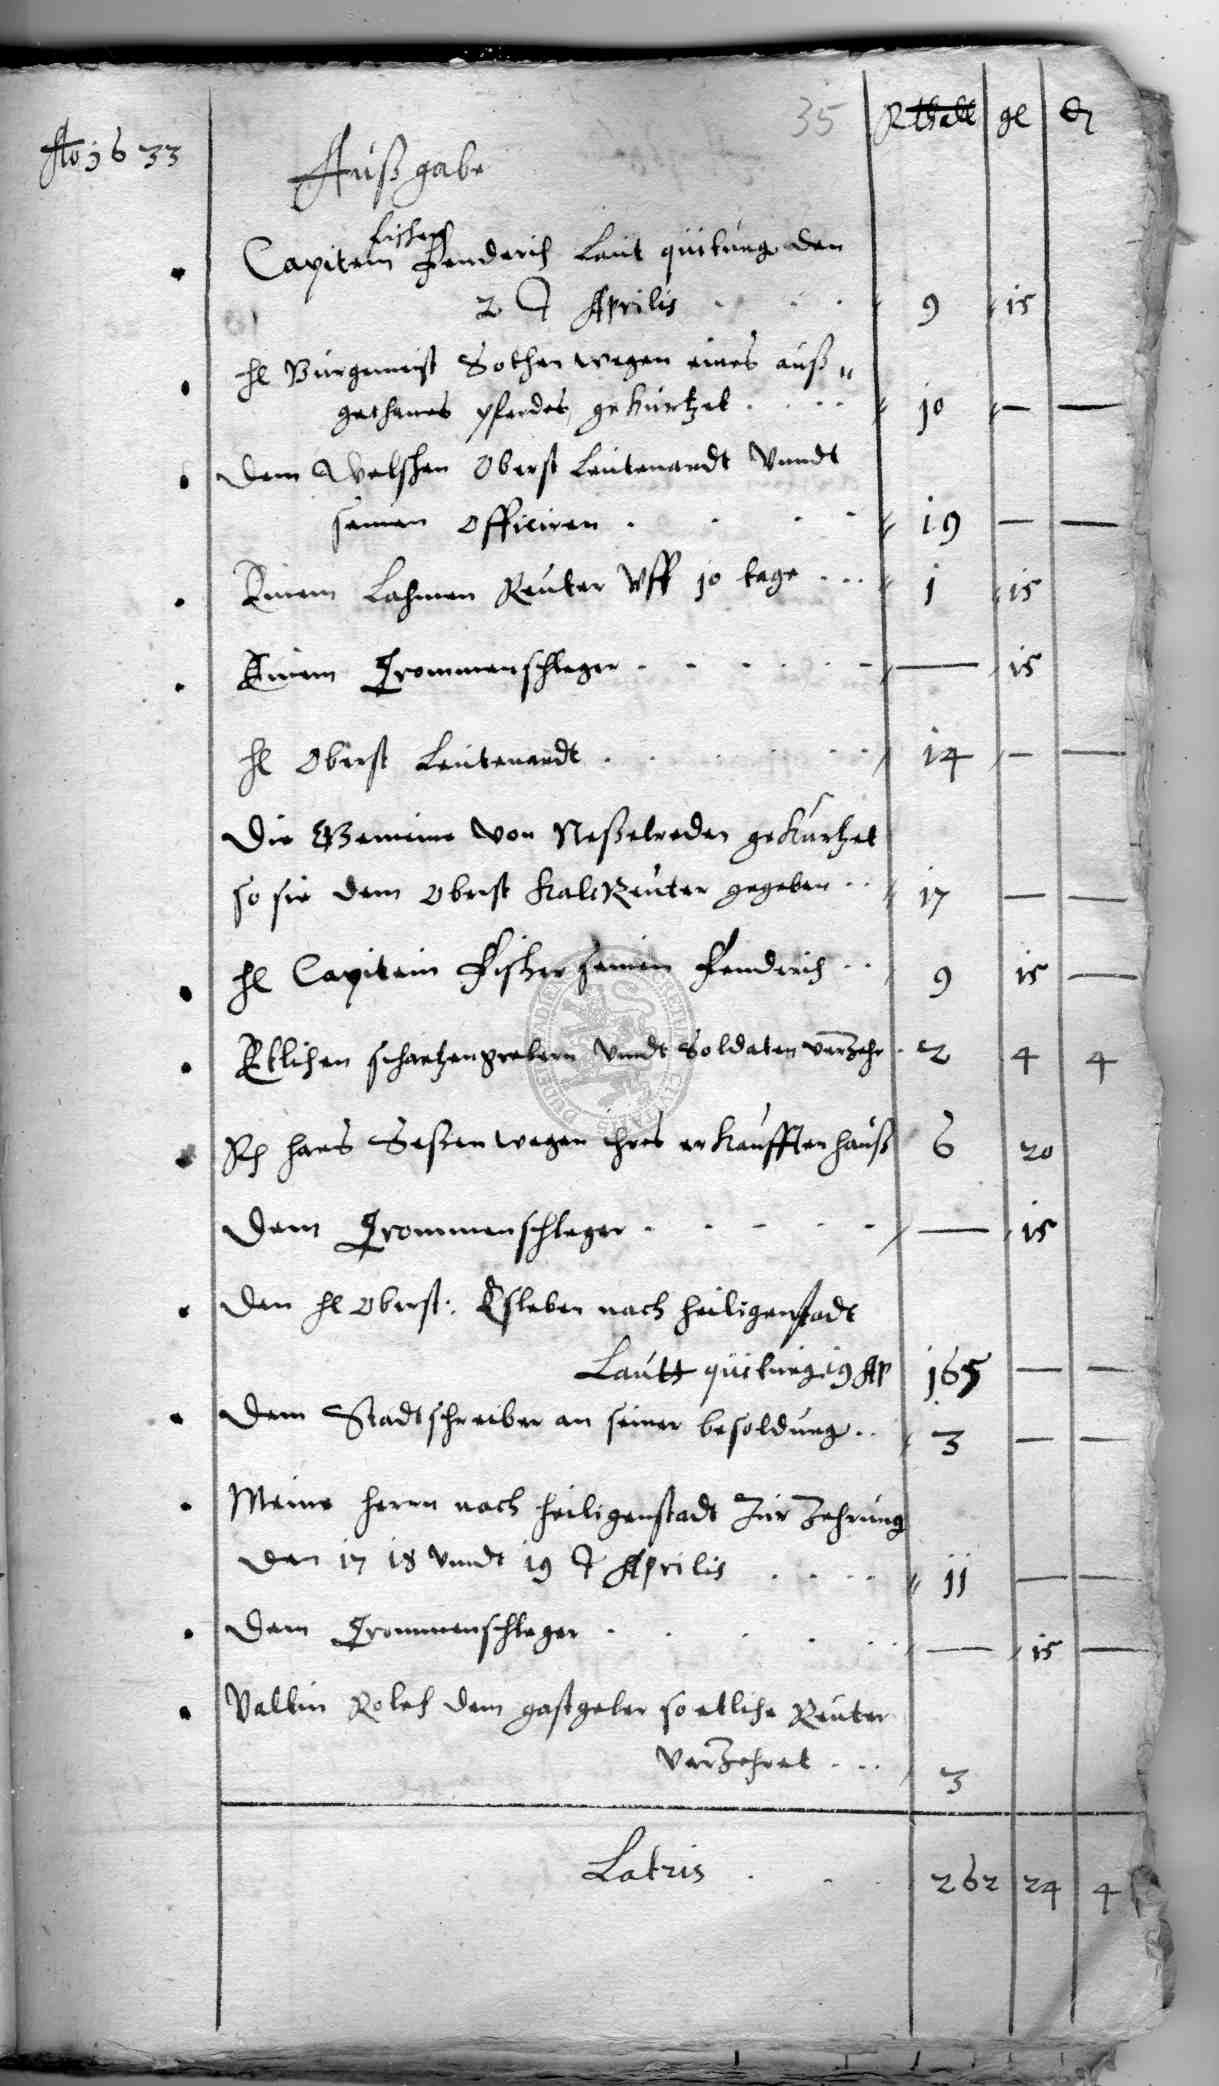 35 Rthall gl d
Ao 1633
Außgabe
Fischers
Capitein Fenderich Laut quitung den
2 t Aprilis 9 15
hl Burgemeist Sothen wegen eines auß
gethanes pferdes gekürtzet 10 — —
Dem Welschen Oberst Leutenandt Vnndt
seinen Officiren 19 — —
Einem Lahmen Reuter Vff 10 tage 1 15
Einem Trommenschleger — 15
hl Oberst Leutenandt 14 — —
Die Gemeine Von Neßelreden gekürtzet
so sie dem Oberst KalcReuter gegeben 17 — —
hl Capitein Fischer seinen Fenderich 9 15 —
Etlichen schantzengrebern Vnndt Soldaten verzehr 2 4 4
hans Seßen wegen ihres erkaufften hauß 6 20
Dem Trommenschleger — 15
Den hl Oberst: Esleben nach heiligenstadt
Lautt quitung 19 Ap 165 — —
Dem Stadtschreiber an seiner besoldung 3 — —
Meine herrn nach heiligenstadt Zur Zehrung
den 17 18 Vnndt 19 t Aprilis 11 — —
Dem Trommenschleger — 15 —
Valtin dem gastgeber so etliche Reuter
Verzehret 3
Latris 262 24 4